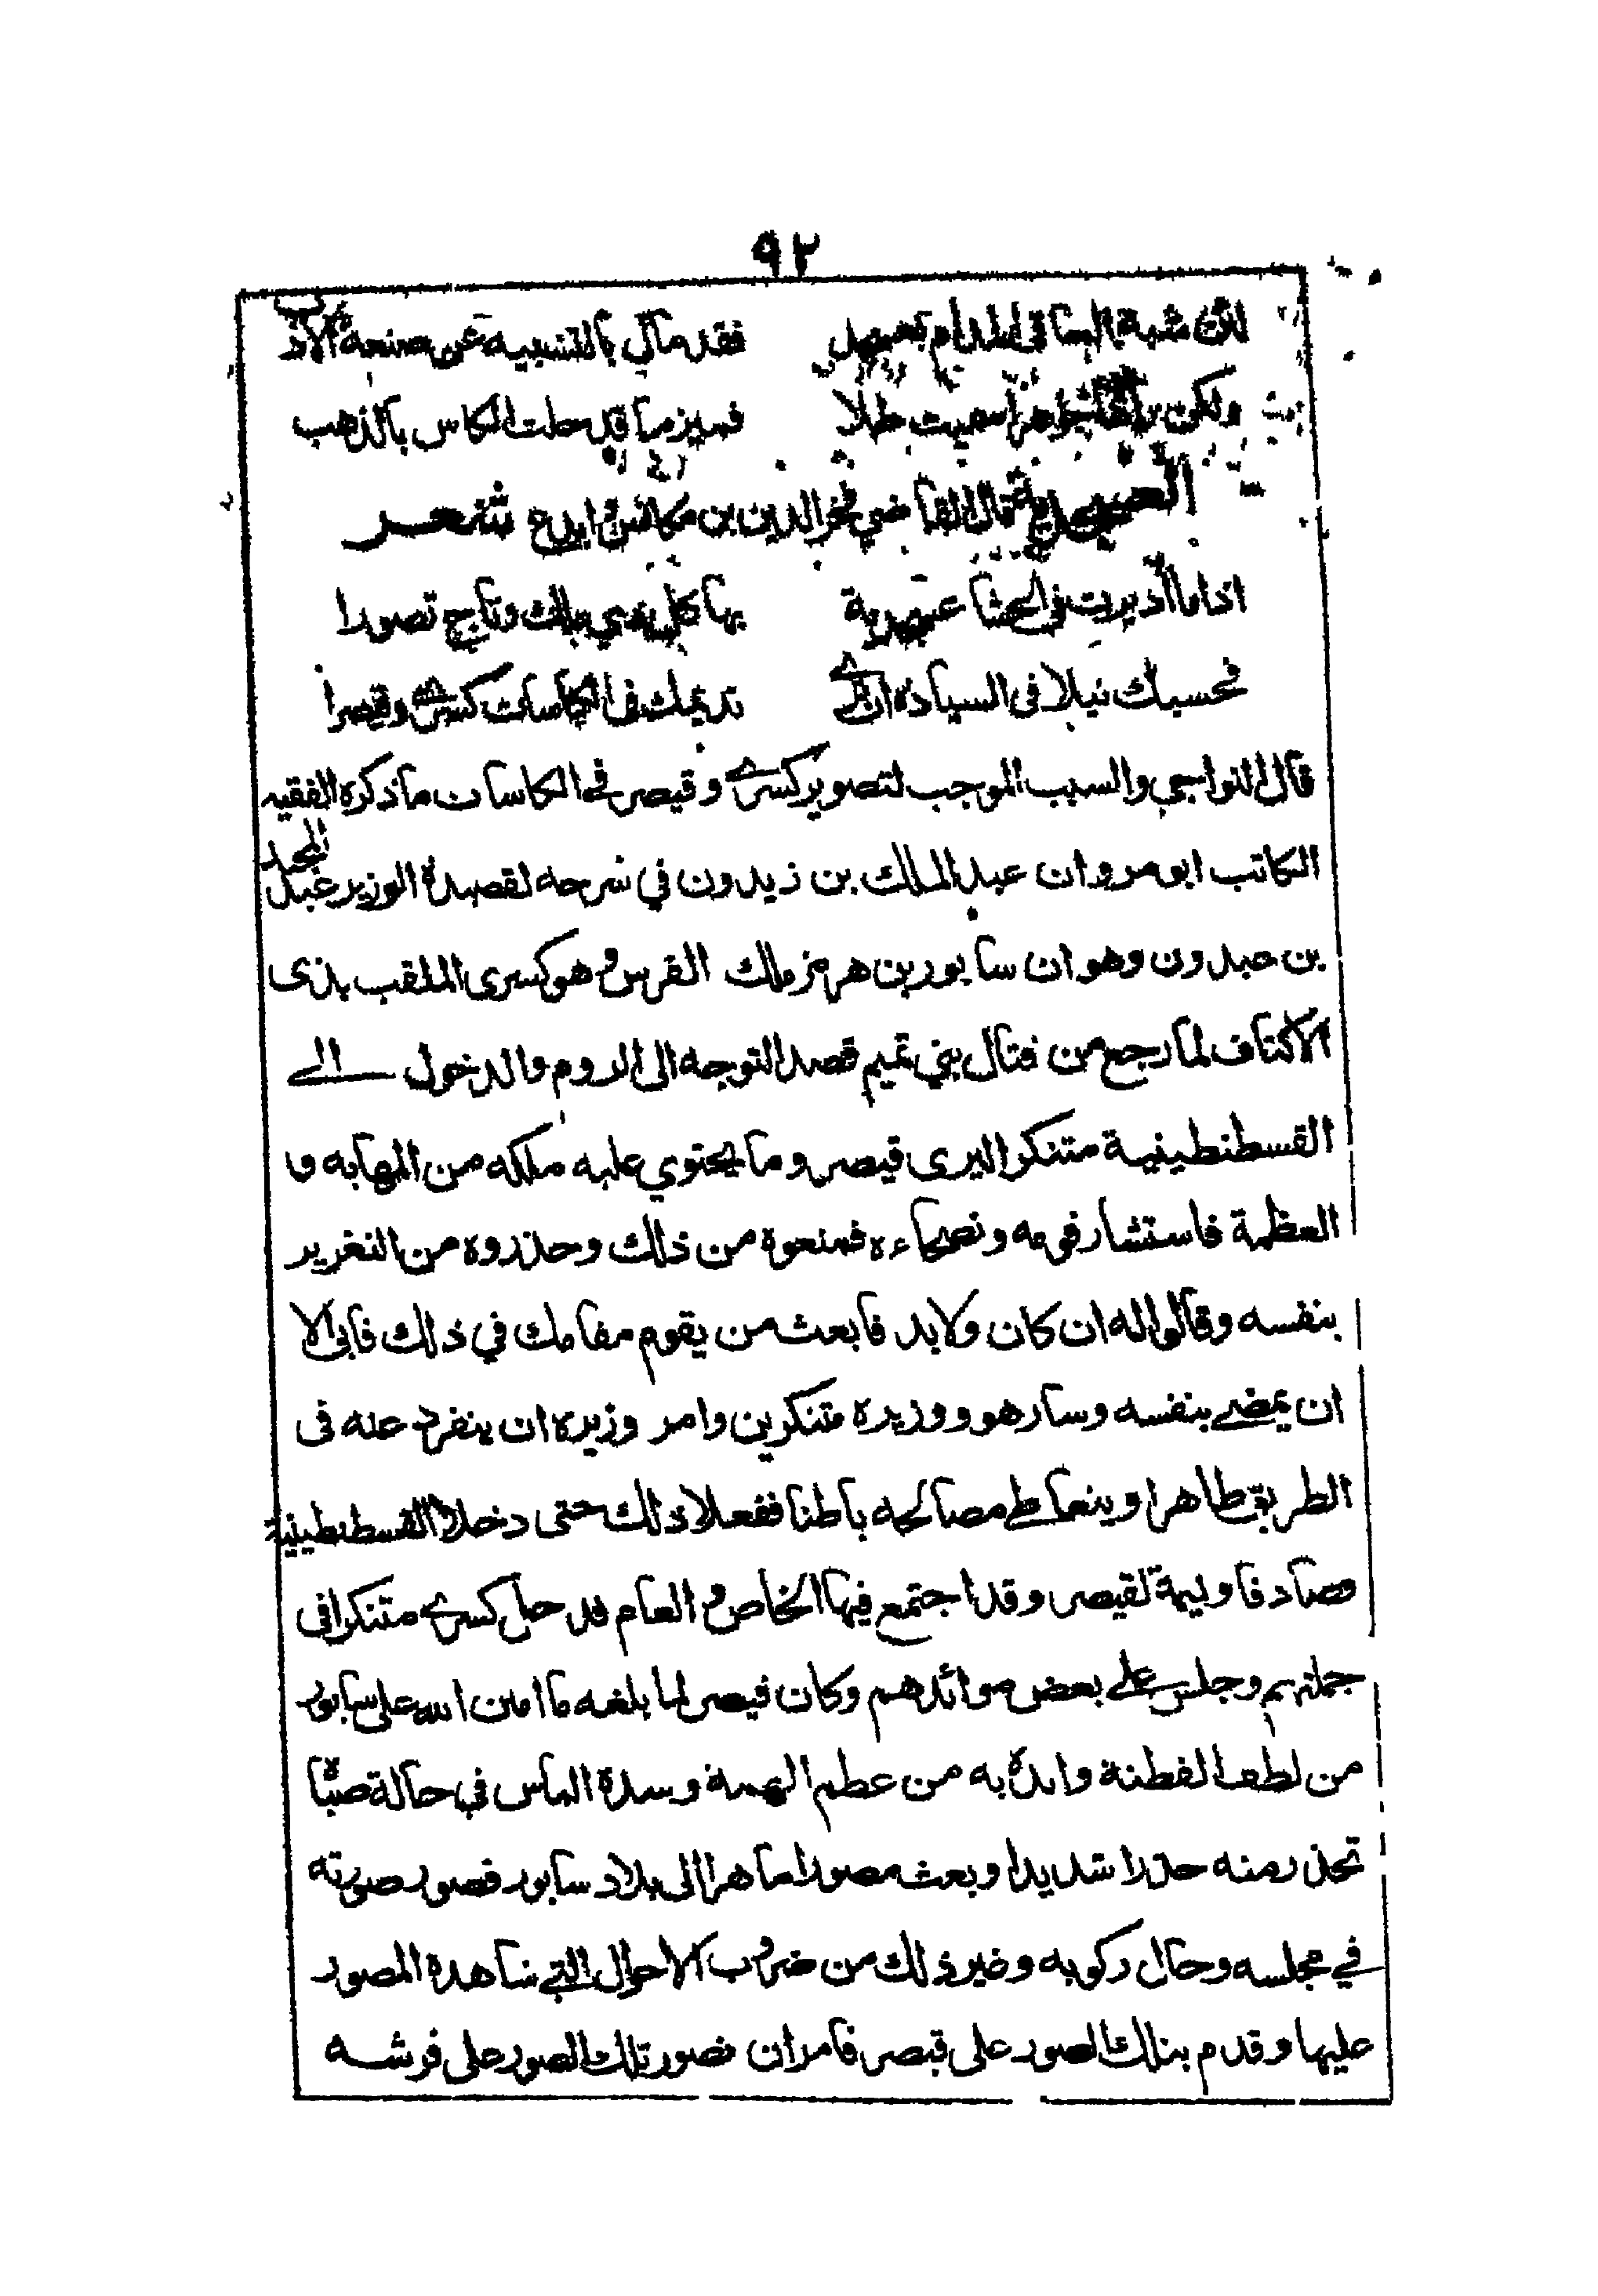 ٩٢
لئن شبه الساقي المدام بعسجد فقد مال بالتشبيه عن صنعة الادب
ولكن رآها جوهرا سميت طلا فميز ما قد حلت الكاس بالذهب
قال القاضي فخر الدين بن مكانس وابدع شعر
اذا ما اديرت في حشا عسجدية بها كل ذي ملك وتاج تصورا
فحسبك نيلا في السيادة ان ترى نديمك في الكاسات كسرى وقيصرا
قال النواجي والسبب الموجب لتصوير كسرى وقيصر في الكاسات ما ذكره الفقيه
الكاتب ابو مروان عبد الملك بن زيدون في شرحه لقصيدة الوزير عبد المجيد
بن عبدون وهو ان سابور بن هرمز ملك الفرس وهو كسرى الملقب بذى
الاكتاف لما رجع من قتال بني تميم قصد التوجه الى الروم والدخول الى
القسطنطينية متنكرا ليرى قيصر وما يحتوي عليه ملكه من المهابه و
العظمة فاستشار قومه ونصحاءه فمنعوه من ذلك وحذروه من التغرير
بنفسه وقالوا له ان كان ولابد فابعث من يقوم مقامك في ذلك فابى الا
ان يمضي بنفسه وسار هو ووزيره متنكرين وامر وزيره ان ينفرد عنه في
الطريق ظاهرا ويتعاطى مصالحه باطنا ففعلا ذلك حتى دخلا القسطنطينية
فصادفا وليمة لقيصر وقد اجتمع فيها الخاص والعام فدخل كسرى متنكرا في
جملتهم وجلس على بعض موائدهم وكان قيصر لما بلغه ما امتن الله على سابور
من لطف الفطنة وايده به من عظم الهمة وشدة الباس في حالة صباه
تحذر منه حذرا شديدا وبعث مصورا ماهرا الى بلاد سابور فصور صورته
في مجلسه وحال ركوبه وغير ذلك من ضروب الاحوال التي شاهده المصور
عليها وقدم بتلك الصور على قيصر فامر ان تصور تلك الصور على فرشه